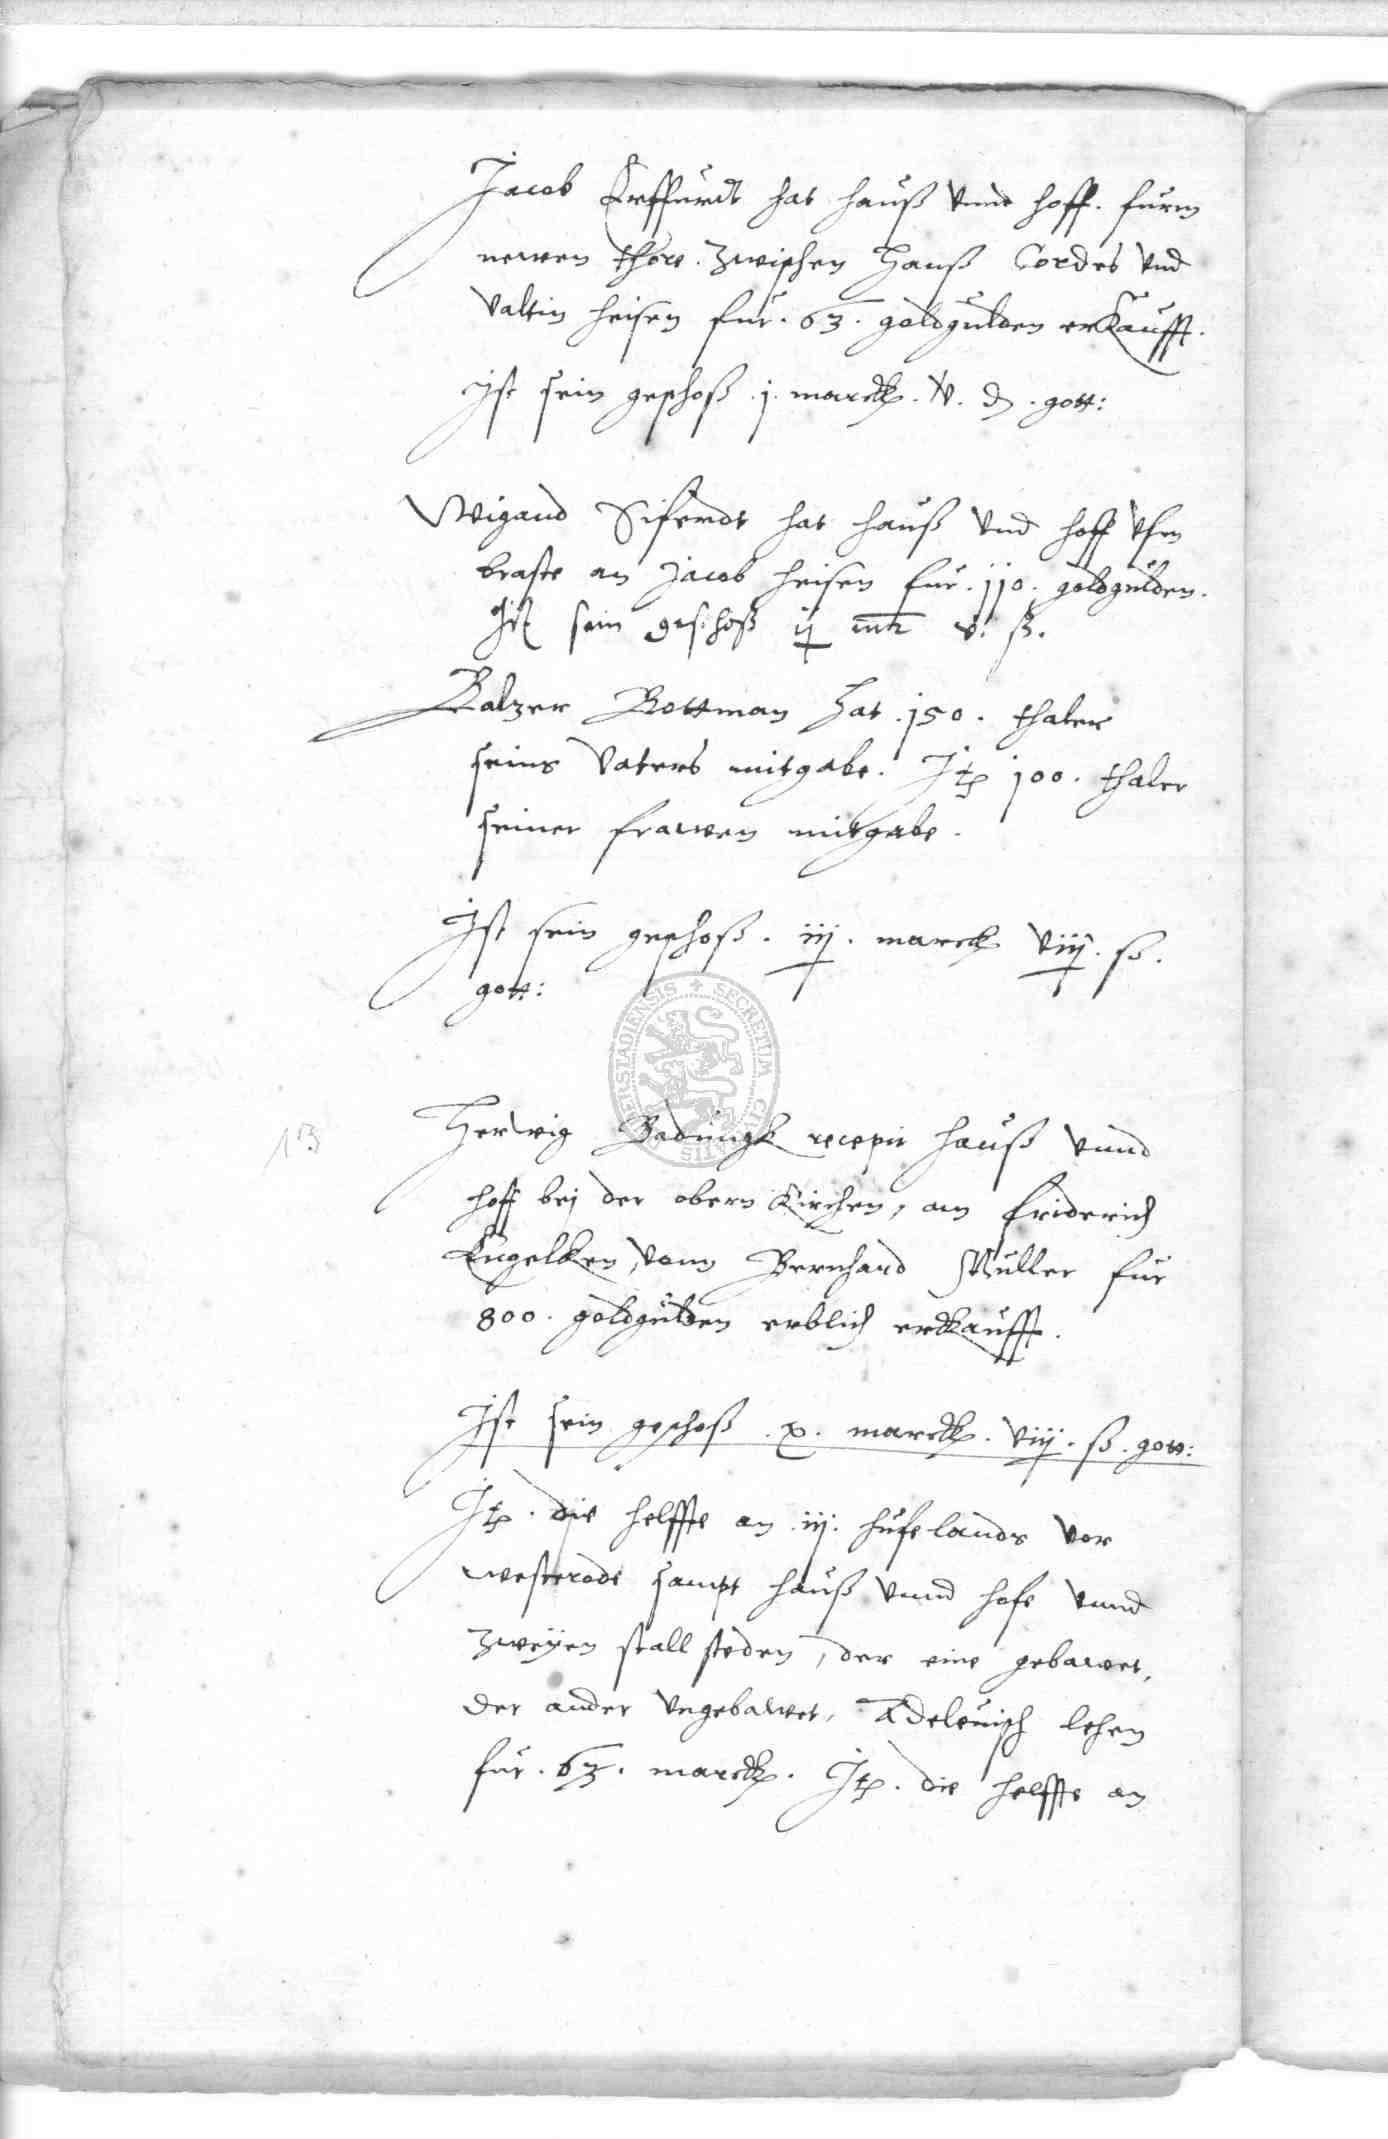 Jacob Erffurdt hat hauß vnnd hoff. furm
newen thore. zwischen Hanß Cordes vnd
Valtin heisen fur. 63. goldgulden erkaufft.
Ist sein geschoß .j. marck. v. d. gott:
Wigand Siferdt hat hauß vnd hoff vfm
braste an Jacob heisen fur. 110. goldgulden.
Ist sein geschoß ij mr v. ß.
Balzer Rottman hat .150. thaler
seins Vaters mitgabe. Itp 100. thaler
seiner frawen mitgabe.
Ist sein geschoß. iij. marck viij. ß.
gott:
SECRETUM CIVITATIS
13
Herwig Badungk recepit hauß vnnd
hoff bej der obern Kirchen, am friderich
Engelken, vonn Bernhard Muller fur
800. goldgulden erblich erckaufft.
Ist sein geschoß .x. marck. viij. ß. gott:
Itp. die helffte an .iij. hufe lands vor
westerode sampt hauß vnnd hofe vnnd
zweyen stall steden, der eine gebawet,
der ander vngebawet, Adeleuisch lehen
fur. 63. marck. Itp. die helffte an